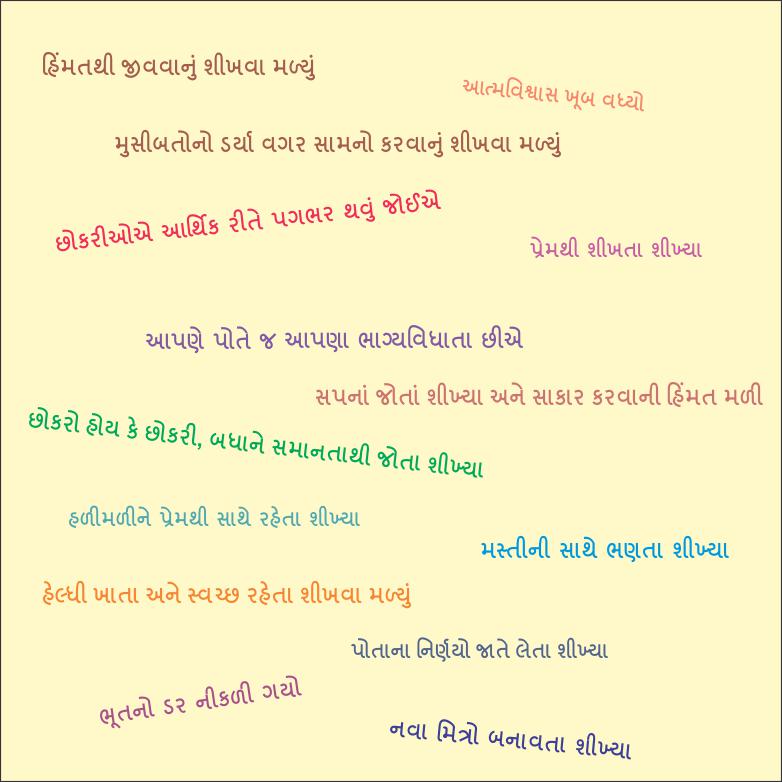 હિંમતથી જીવવાનું શીખવા મળ્યું
આત્મવિશ્વાસ ખૂબ વધ્યો
મુસીબતોનો ડર્યા વગર સામનો કરવાનું શીખવા મળ્યું
છોકરીઓએ આર્થિક રીતે પગભર થવું જોઈએ
પ્રેમથી શીખતા શીખ્યા
આપણે પોતે જ આપણા ભાગ્યવિધાતા છીએ
સપનાં જોતાં શીખ્યા અને સાકાર કરવાની હિંમત મળી
છોકરો હોય કે છોકરી, બધાને સમાનતાથી જોતા શીખ્યા
હળીમળીને પ્રેમથી સાથે રહેતા શીખ્યા
મસ્તીની સાથે ભણતા શીખ્યા
હેલ્ધી ખાતા અને સ્વચ્છ રહેતા શીખવા મળ્યું
પોતાના નિર્ણયો જાતે લેતા શીખ્યા
ભૂતનો ડર નીકળી ગયો
નવા મિત્રો બનાવતા શીખ્યા